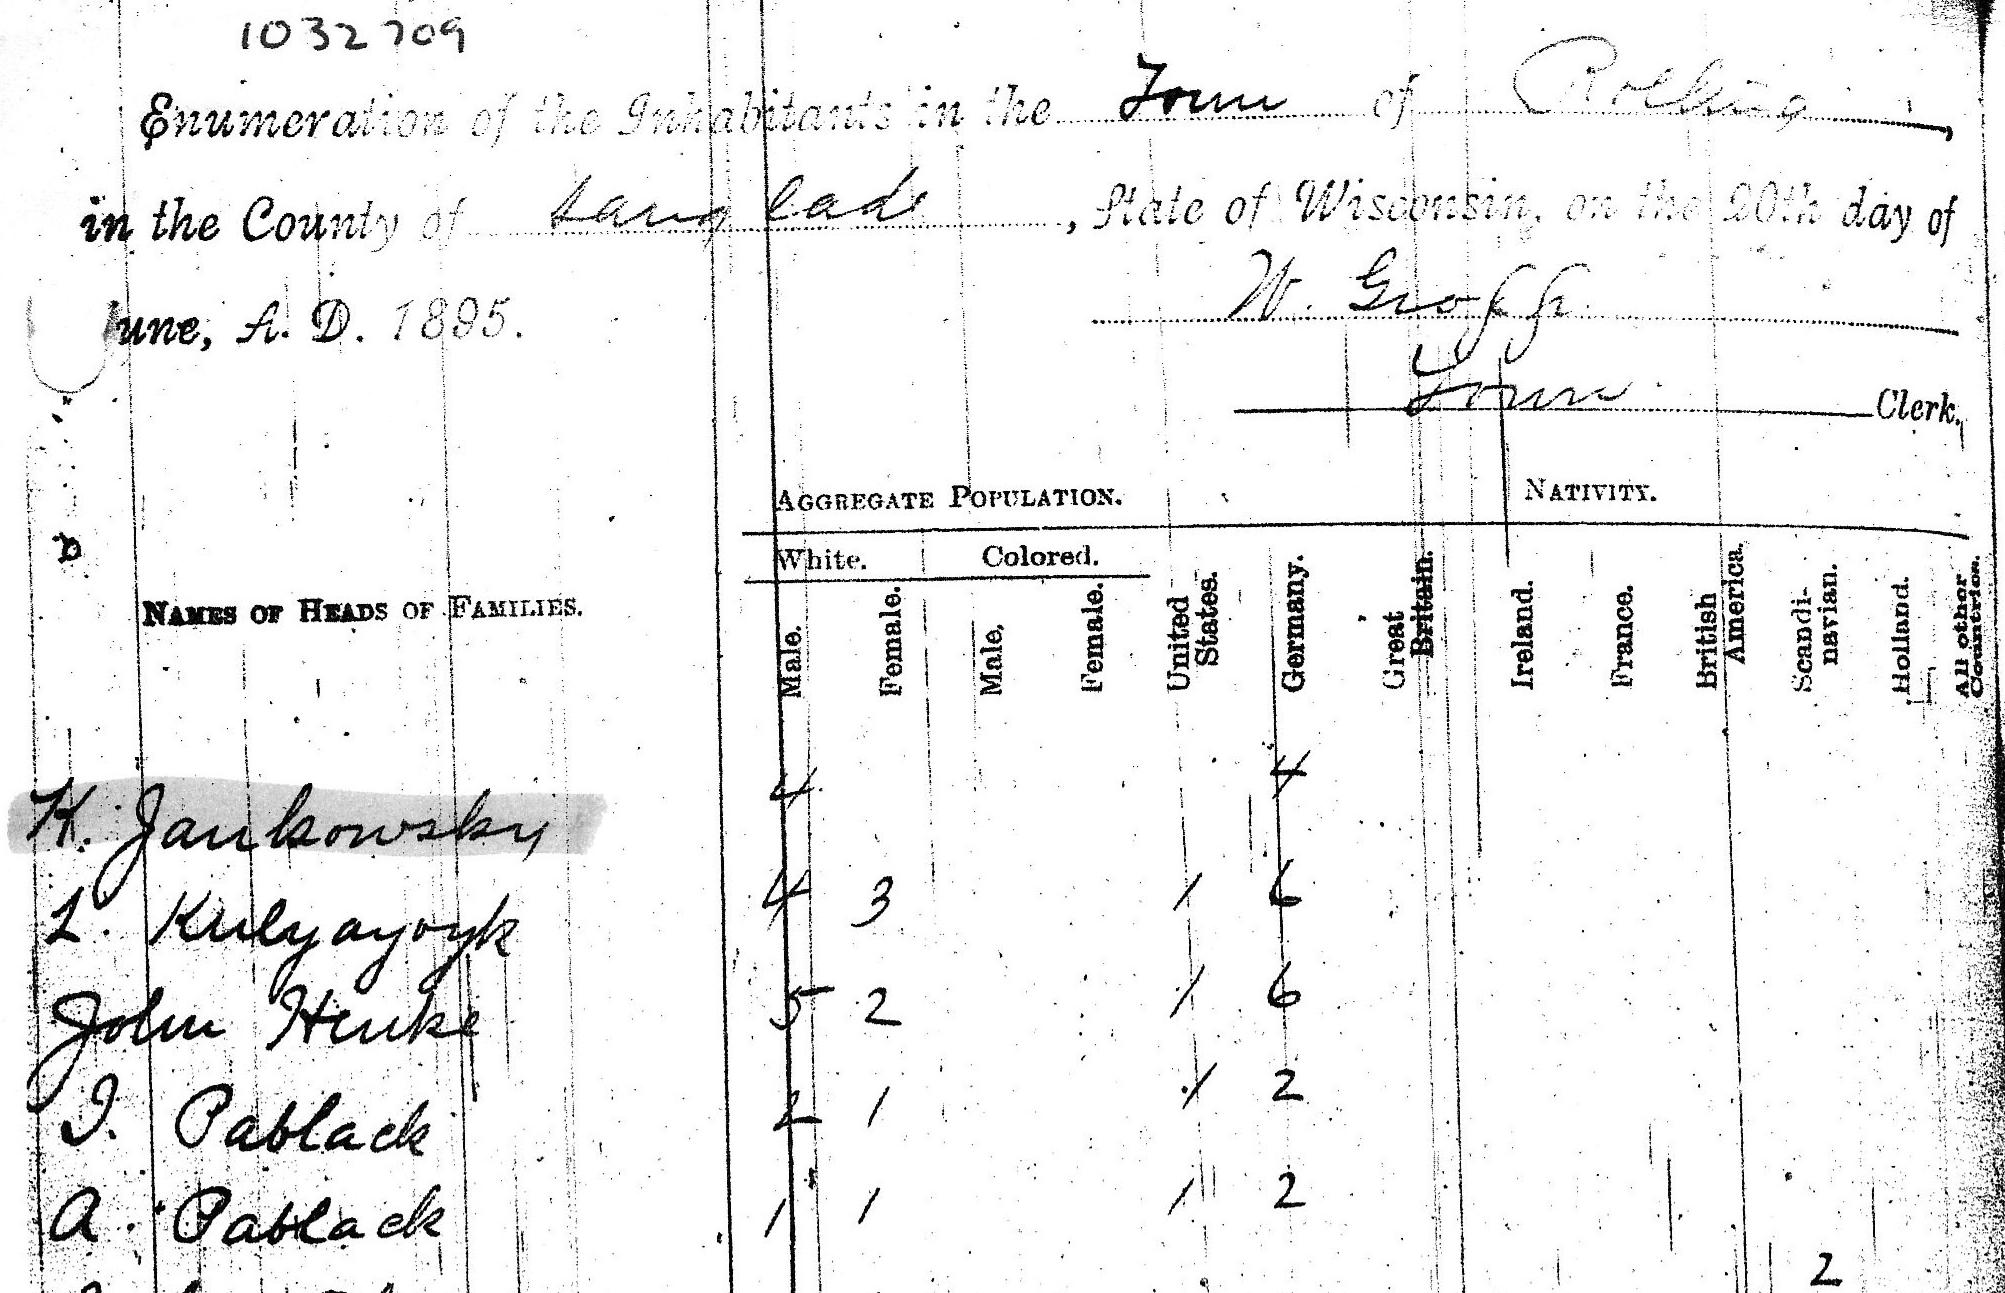 1032709
Enumeration of the Inhabitants in the Town of Rolling,
in the County of Langlade, State of Wisconsin, on the 20th day of
June, A. D. 1895.
W. Groff
Town Clerk.
AGGREGATE POPULATION. NATIVITY.
White. Colored.
NAMES OF HEADS OF FAMILIES. Male. Female. Male. Female. United States. Germany. Great Britain. Ireland. France. British America. Scandinavian. Holland. All other Countries.
K. Jankowsky 4 4
L. 4 3 1 6
John Henke 5 2 1 6
I. Pablack 2 1 1 2
A. Pablack 1 1 1 2
2